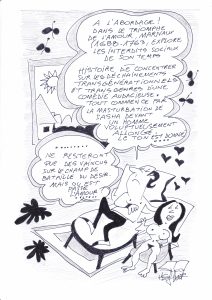 A L'ABORDAGE!
DANS LE TRIOMPHE
DE L'AMOUR, MARIVAUX
(1688-1763), EXPLORE
LES INTERDITS SOCIAUX
DE SON TEMPS
HISTOIRE DE CONCENTRER
SUR LES DÉCHAÎNEMENTS
TRANSGÉNÉRATIONNELS
ET TRANSGENRES D'UNE
COMÉDIE AUDACIEUSE,
TOUT COMMENCE PAR
LA MASTURBATION DE
SASHA DEVANT
UN HOMME
VOLUPTUEUSEMENT
ALLONGÉ....
LE TON EST DONNÉ
NE RESTERONT
QUE DES VAINCUS
SUR LE CHAMP DE
BATAILLE DU DESIR.
MAIS OÙ EST
PASSÉ
L'AMOUR?